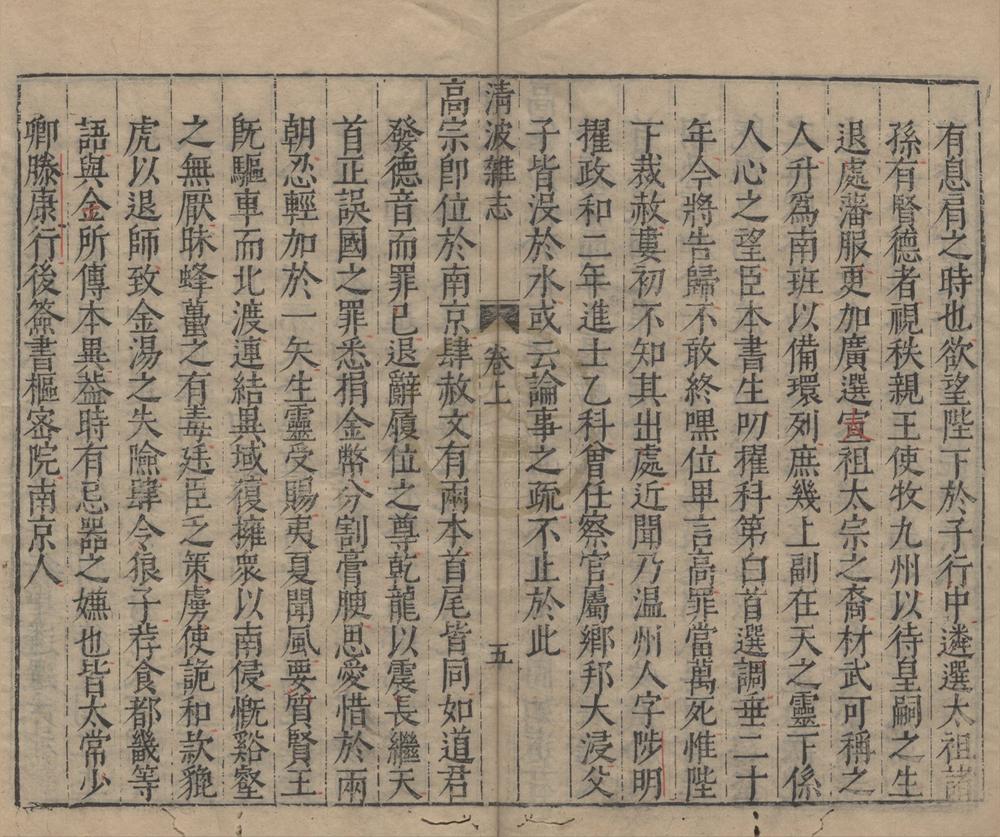 有息肩之時也欲望陛下於子行中遴選太祖諸
孫有賢德者視秩親王使牧九州以待皇嗣之生
退處藩服更加廣選宣祖太宗之裔材武可稱之
人升爲南班以備環列庶幾上副在天之靈下係
人心之望臣本書生叨擢科第白首選調垂二十
年今將告歸不敢終嘿位卑言高罪當萬死惟陛
下裁赦婁初不知其出處近聞乃温州人字陟明
擢政和二年進士乙科曾任察官屬鄉邦大浸父
子皆没於水或云論事之疏不止於此
清波雜志
卷上
五
高宗卽位於南京肆赦文有兩本首尾皆同如道君
發德音而罪已退辭履位之尊乾龍以震長繼天
首正誤國之罪悉捐金幣分割膏腴思愛惜於兩
朝忍輕加於一矢生靈受賜夷夏聞風要質賢王
旣驅車而北渡連結異域復擁衆以南侵慨谿壑
之無厭昧蜂蠆之有毒廷臣乏策虜使詭和款貔
虎以退師致金湯之失險肆令狼子荐食都畿等
語與金所傳本異益時有忌器之嫌也皆太常少
卿滕康行後簽書樞密院南京人